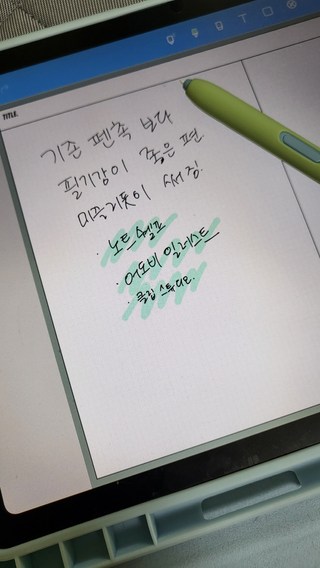 TITLE.
기존 펜촉 보다
필기감이 좋은 편
미끌거릿이 써짐.
· 노트쉘프
· 어도비 일러스트
· 클립 스튜디오.